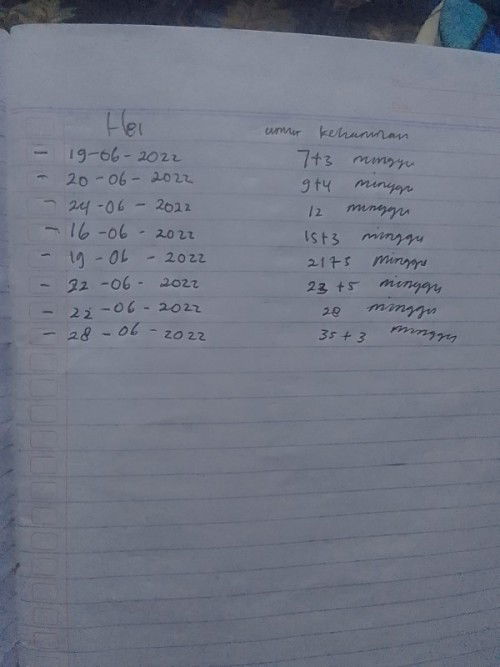 Hei umur kehamilan
- 19-06-2022 7+3 minggu
- 20-06-2022 9+4 minggu
- 24-06-2022 12 minggu
- 16-06-2022 15+3 minggu
- 19-06-2022 21+5 minggu
- 22-06-2022 23+5 minggu
- 22-06-2022 28 minggu
- 28-06-2022 35+3 minggu